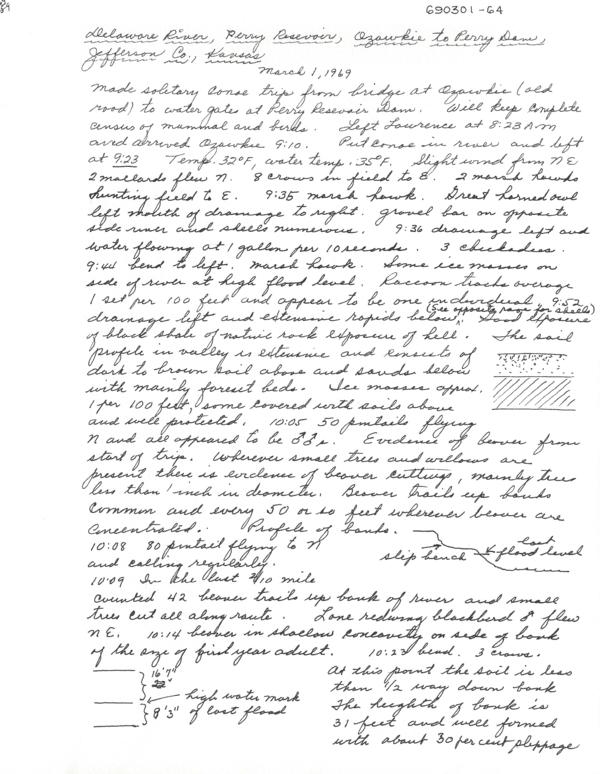 690301-64
Delaware River, Perry Resevoir, Ozawkie to Perry Dam,
Jefferson Co., Kansas
March 1, 1969
Made solitary canoe trip from bridge at Ozawkie (old
road) to water gates at Perry Resevoir Dam. Will keep complete
census of mammal and birds. Left Lawrence at 8:23 A.M
and arrived Ozawkie 9:10. Put canoe in river and left
at 9:23 Temp. 32°F, water temp. 35°F. Slight wind from NE
2 mallards flew N. 8 crows in field to E. 2 marsh hawks
hunting field to E. 9:35 marsh hawk. Great horned owl
left mouth of drainage to right. gravel bar on opposite
side river and shells numerous. 9:36 drainage left and
water flowing at 1 gallon per 10 seconds. 3 chickadees.
9:44 bend to left. Marsh hawk. Some ice masses on
side of river at high flood level. Raccoon tracks average
1 set per 100 feet and appear to be one individual. 9:52
(see opposite page for shells)
drainage left and extensive rapids below. Good exposure
of black shale of native rock exposure of hill. The soil
profile in valley is extensive and consists of
dark to brown soil above and sands below
with mainly foreset beds. Ice masses approx.
1 per 100 feet, some covered with soils above
and well protected. 10:05 50 pintails flying
N and all appeared to be ♂♂s. Evidence of beaver from
start of trip. Wherever small trees and willows are
present there is evidence of beaver cuttings, mainly trees
less than 1 inch in diameter. Beaver trails up banks
common and every 50 or so feet wherever beaver are
concentrated. Profile of banks.
slip bench
last
flood level
10:08 80 pintail flying to N
and calling regularly.
10:09 In the last 2/10 mile
counted 42 beaver trails up bank of river and small
trees cut all along route. Lone redwing blackbird ♂ flew
NE. 10:14 beaver in shallow concavity on side of bank
of the size of first year adult. 10:23 bend. 3 crows.
16'7"
high water mark
8'3" of last flood
At this point the soil is less
than 1/2 way down bank
The heighth of bank is
31 feet and well formed
with about 30 per cent